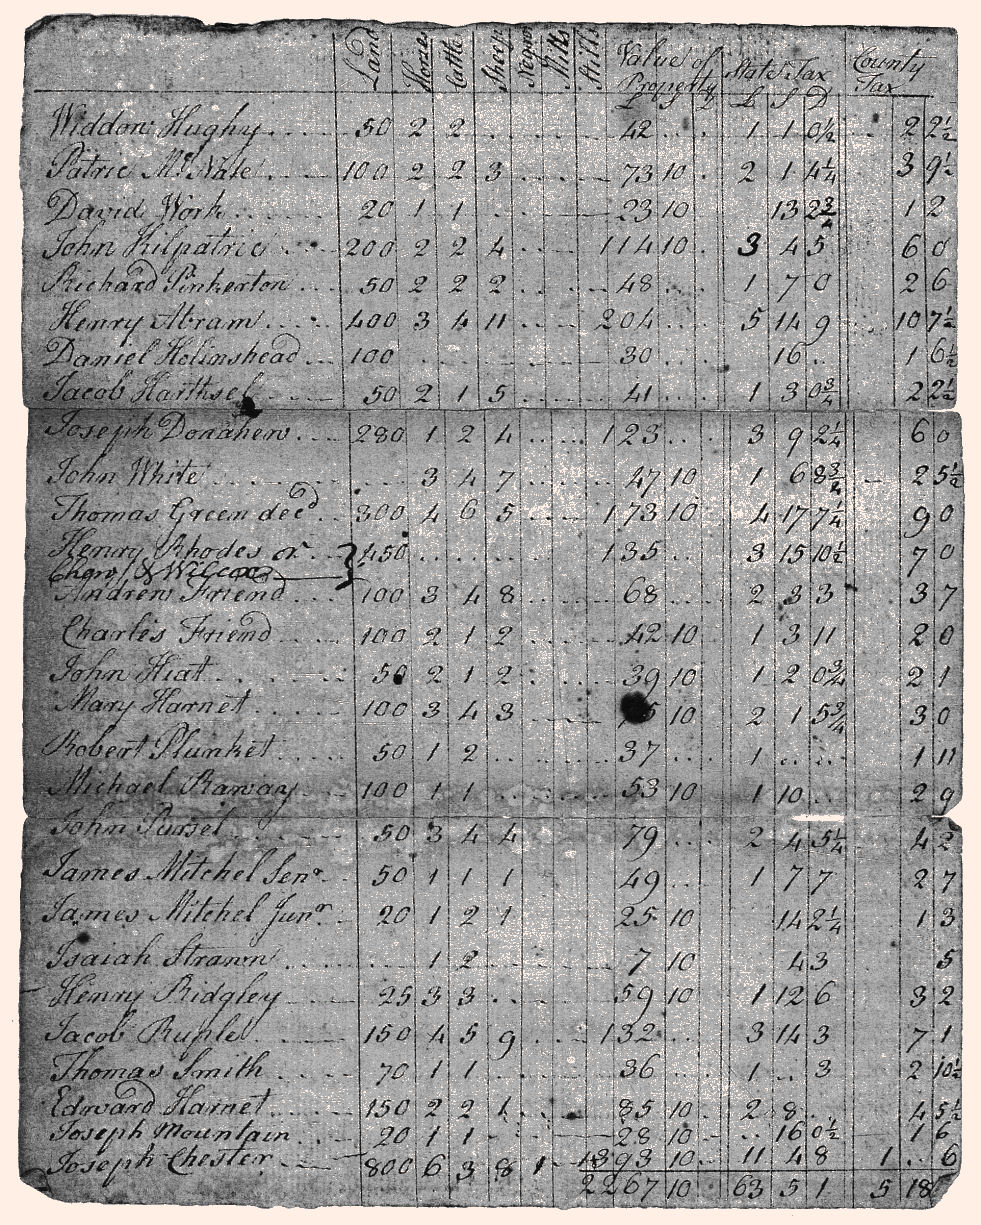 Land Horses Cattle Sheep Negros Mills Stills Value of Property State Tax County Tax
£ S D
Widdow Hughy 50 2 2 42 1 1 0½ 2 2½
Patric 100 2 2 3 73 10 2 1 4¼ 3 9½
David Work 20 1 1 23 10 13 2¾ 1 2
John Kilpatric 200 2 2 4 114 10 3 4 5 6 0
Richard Pinkerton 50 2 2 2 48 1 7 0 2 6
Henry Abram 400 3 4 11 204 5 14 9 10 7½
Daniel Holinshead 100 30 16 1 6½
Jacob Harthsel 50 2 1 5 41 1 3 0¾ 2 2½
Joseph Donahew 280 1 2 4 123 3 9 2¼ 6 0
John White 3 4 7 47 10 1 6 8¾ 2 5½
Thomas Green decd 300 4 6 5 173 10 4 17 7¼ 9 0
Henry Rhodes or 450 135 3 15 10½ 7 0
& Wilcox
Andrew Friend 100 3 4 8 68 2 3 3 3 7
Charles Friend 100 2 1 2 42 10 1 3 11 2 0
John Hiat 50 2 1 2 39 10 1 2 0¾ 2 1
Mary Harnet 100 3 4 3 5 10 2 1 5¾ 3 0
Robert Plunket 50 1 2 37 1 1 11
Michael Raway 100 1 1 53 10 1 10 2 9
John Pursel 50 3 4 4 79 2 4 5¼ 4 2
James Mitchel Senr 50 1 1 1 49 1 7 7 2 7
James Mitchel Junr 20 1 2 1 25 10 14 2¼ 1 3
Isaiah Strawn 1 2 7 10 4 3 5
Henry Ridgley 25 3 3 59 10 1 12 6 3 2
Jacob Ruple 150 4 5 9 132 3 14 3 7 1
Thomas Smith 70 1 1 36 1 3 2 10½
Edward Harnet 150 2 2 1 85 10 2 8 4 5½
Joseph Mountain 20 1 1 28 10 16 0½ 1 6
Joseph Chester 800 6 3 8 1 393 10 11 4 8 1 6
2267 10 63 5 1 5 18